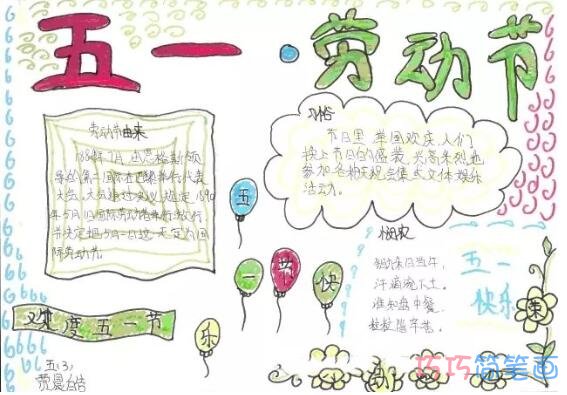 五一·劳动节
劳动节由来
1889年7月,由恩格斯领
导的第二国际在巴黎举行代表
大会。大会通过决议,规定1890
年5月1日国际劳动者举行游行,
并决定把5月1日这一天定为国
际劳动节。
习俗
节日里,举国欢庆,人们
换上节日的盛装,兴高采烈地
参加各种庆祝会集或文体娱乐
活动。
五
一
节
快
乐
悯农
锄禾日当午,
汗滴禾下土。
谁知盘中餐,
粒粒皆辛苦。
五一
快乐
欢度五一节
五(3)
巧巧简笔画